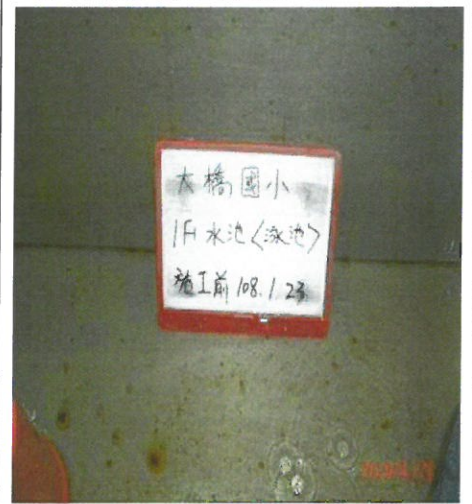 大橋國小
1F水池<泳池>
施工前 108.1.23